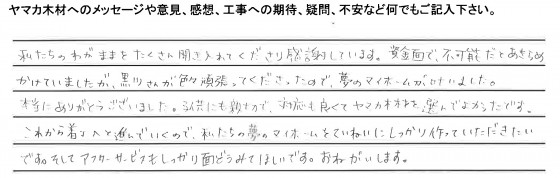 ヤマカ木材へのメッセージや意見、感想、工事への期待、疑問、不安など何でもご記入下さい。
私たちのわがままをたくさん聞き入れてくださり感謝しています。資金面で、不可能だとあきらめ
かけていましたが、黒川さんが色々頑張ってくださったので、夢のマイホームがけいました。
本当にありがとうございました。子供にも親切で、対応も良くてヤマカ木材を選んでよかったです。
これから着工へと進んでいくので、私たちの夢のマイホームをていねいにしっかり作っていただきたい
です。そしてアフターサービスもしっかり面どうみてほしいです。おねがいします。